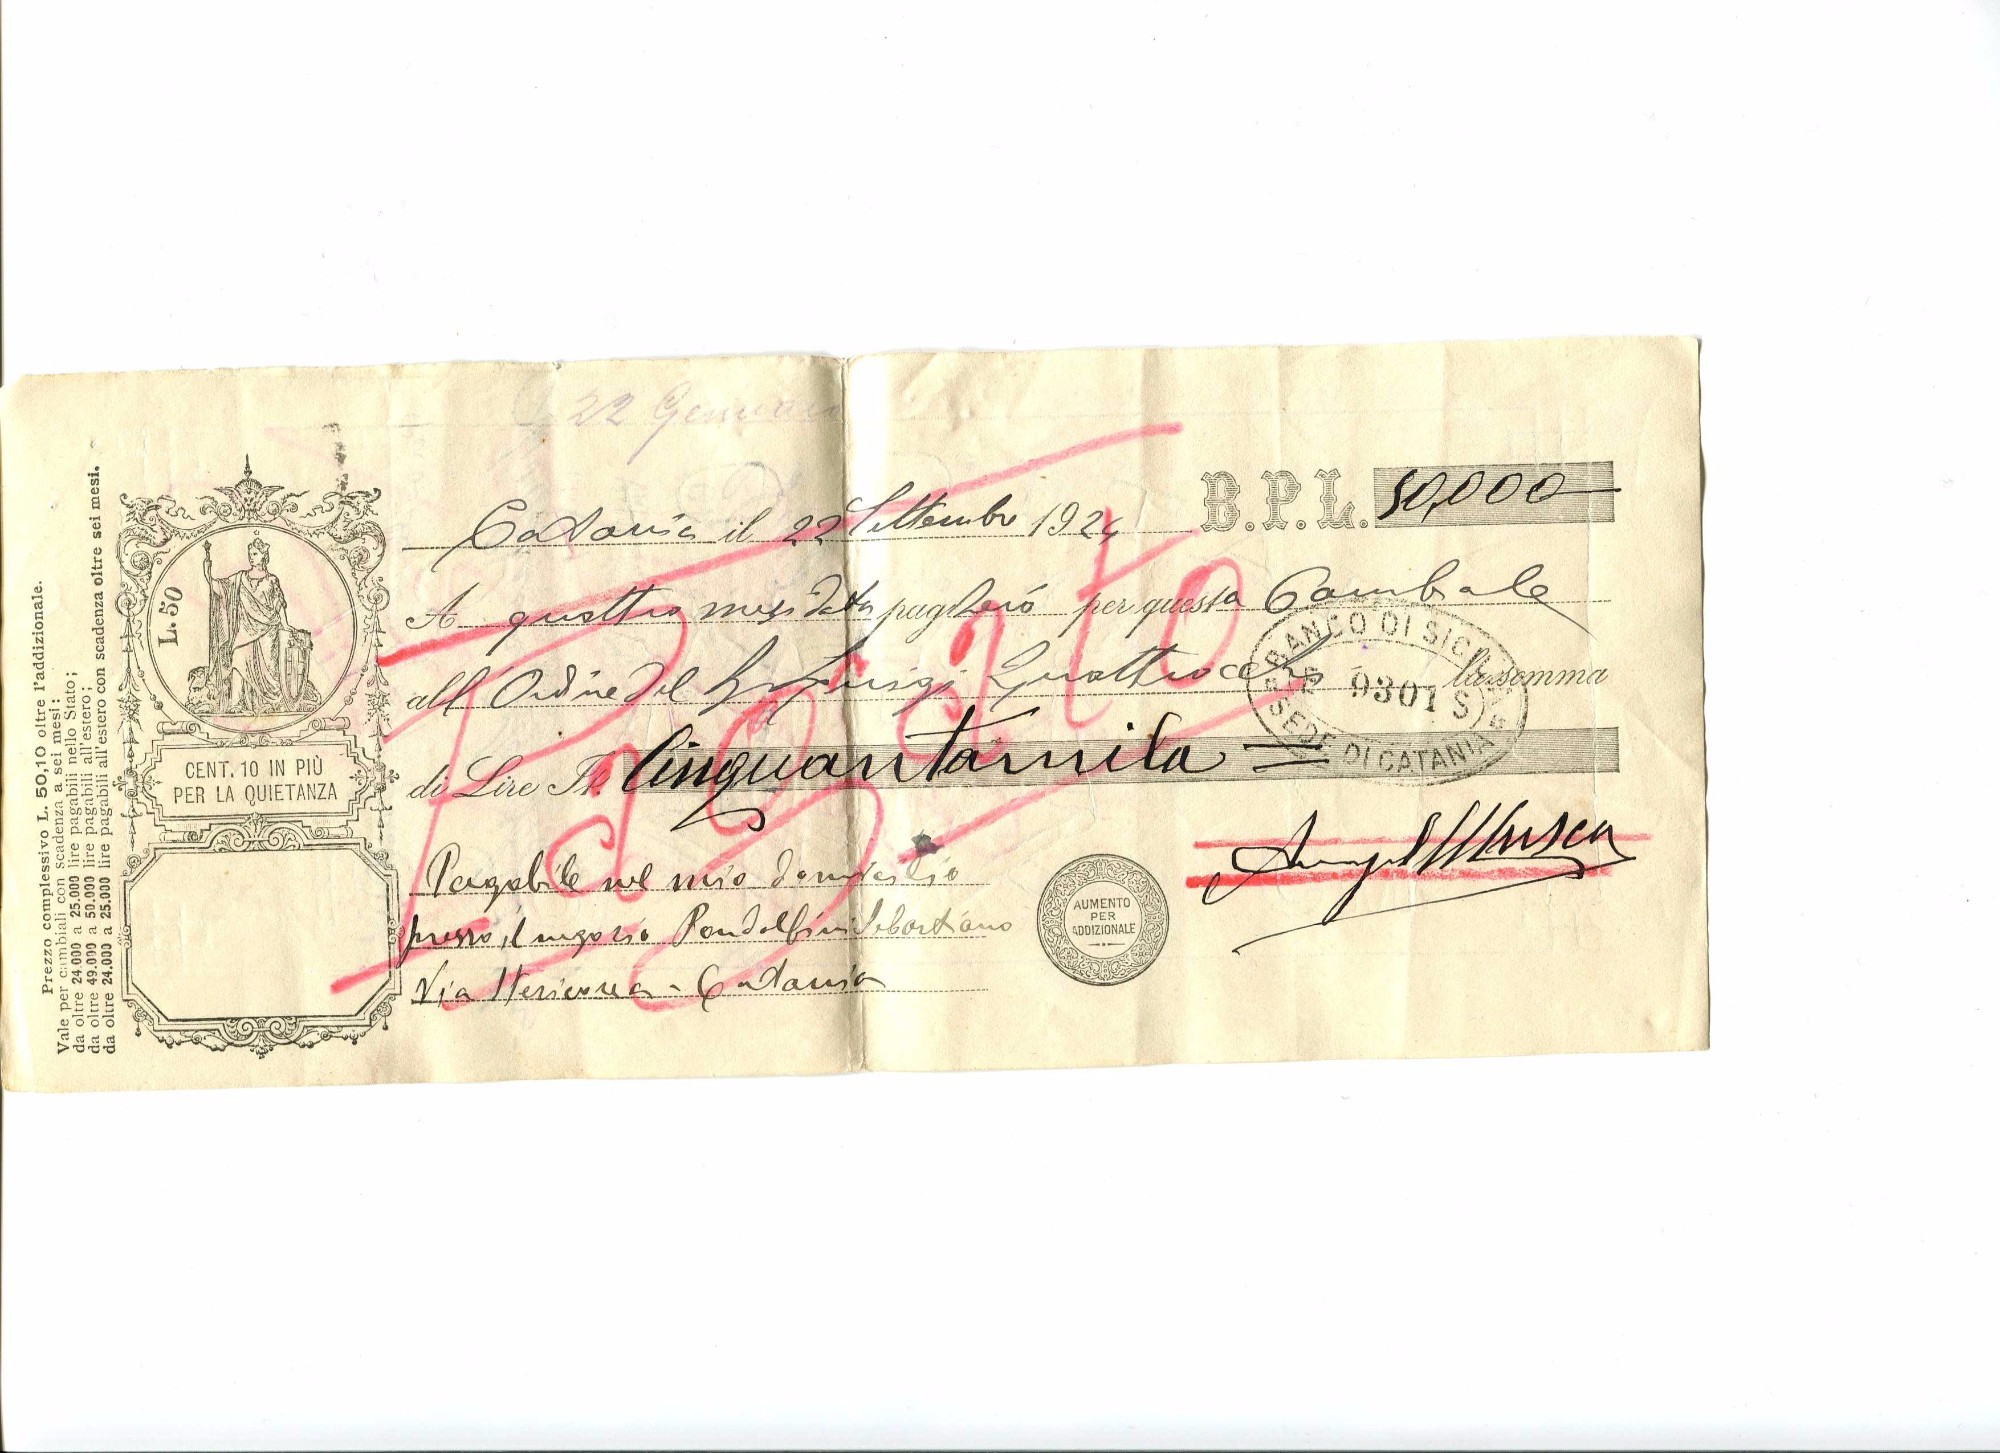 Prezzo complessivo L. 50,10 oltre l'addizionale.
Vale per cambiali con scadenza a sei mesi:
da oltre 24.000 a 25.000 lire pagabili nello Stato;
da oltre 49.000 a 50.000 lire pagabili all'estero;
da oltre 24.000 a 25.000 lire pagabili all'estero con scadenza oltre sei mesi.
L. 50
CENT. 10 IN PIÙ
PER LA QUIETANZA
22 Gennaio
Catania il 22 Settembre 1924 B.P.L. 50,000
A quattro mesi data pagherò per questa Cambiale
all Ordine del Luigi Quattrocchi la somma
di Lire It. Cinquantamila
BANCO DI SICILIA
9301 S
SEDE DI CATANIA
Pagato
Pagabile nel mio domicilio
presso il negozio Pandolfini Sebastiano
Via - Catania
AUMENTO
PER
ADDIZIONALE
Angelo Musco